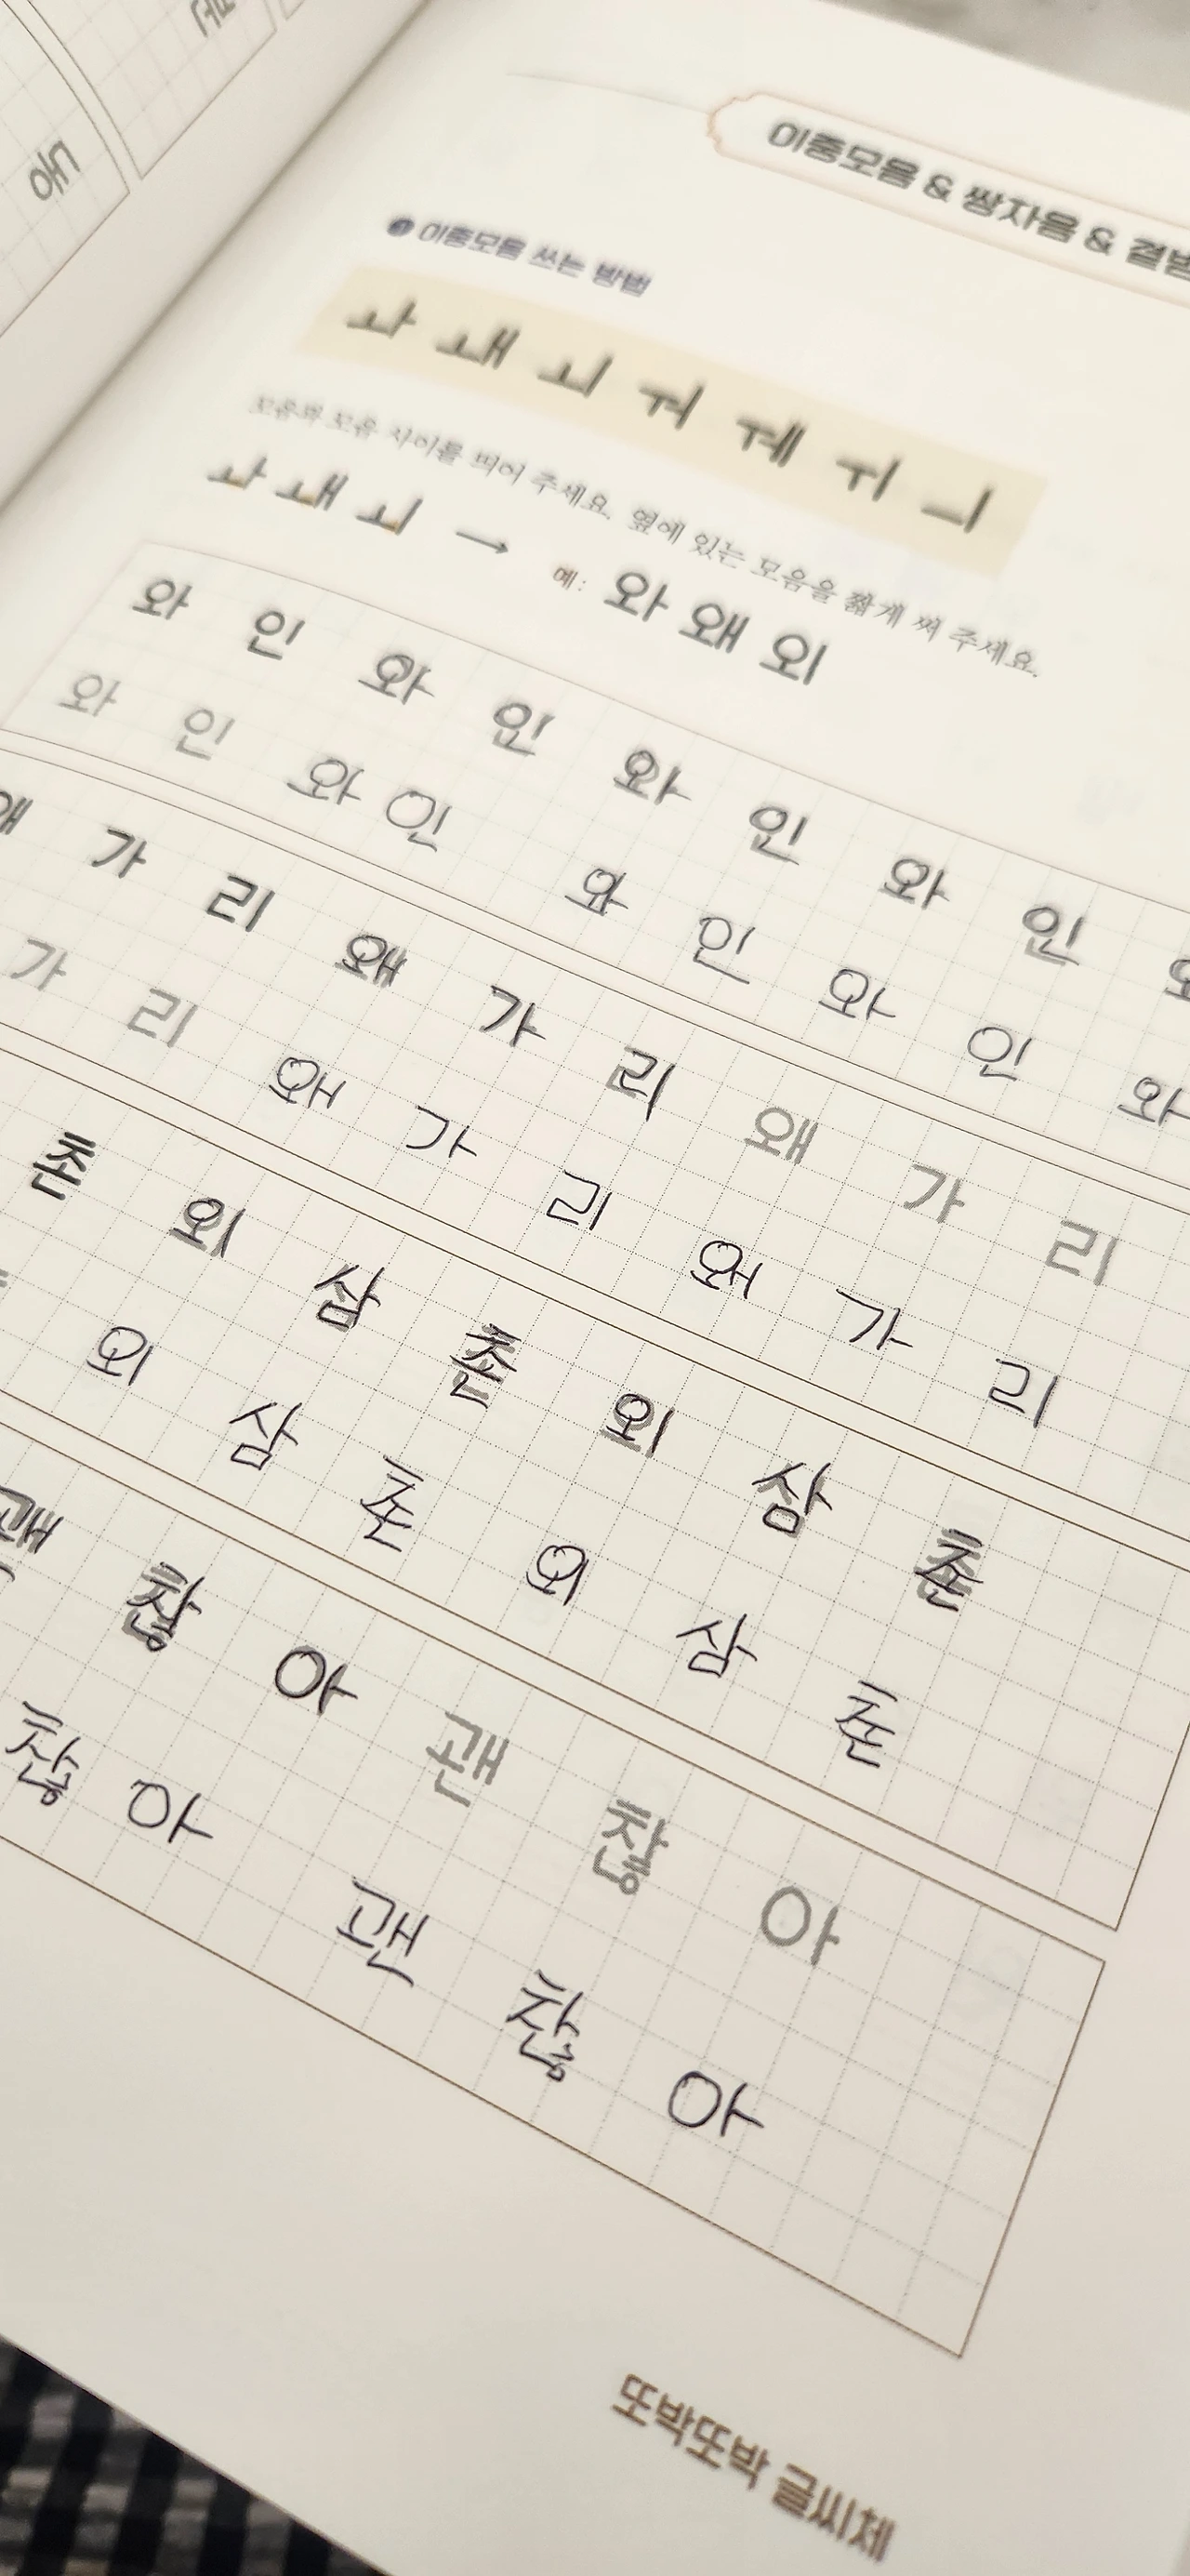 이중모음 & 쌍자음 & 겹받
이중모음 쓰는 방법
ㅘ ㅙ ㅚ ㅝ ㅞ ㅟ ㅢ
모음와 모음 사이를 띄어 주세요. 옆에 있는 모음을 짧게 써 주세요.
ㅘ ㅙ ㅚ → 예: 와 왜 외
와 인 와 인 와 인 와 인
와 인 와 인 와 인 와 인 와
왜 가 리 왜 가 리 왜 가 리
가 리 왜 가 리 왜 가 리
촌 외 삼 촌 외 삼 촌
외 삼 촌 외 삼 촌
괜 찮 아 괜 찮 아
찮 아 괜 찮 아
또박또박 글씨체